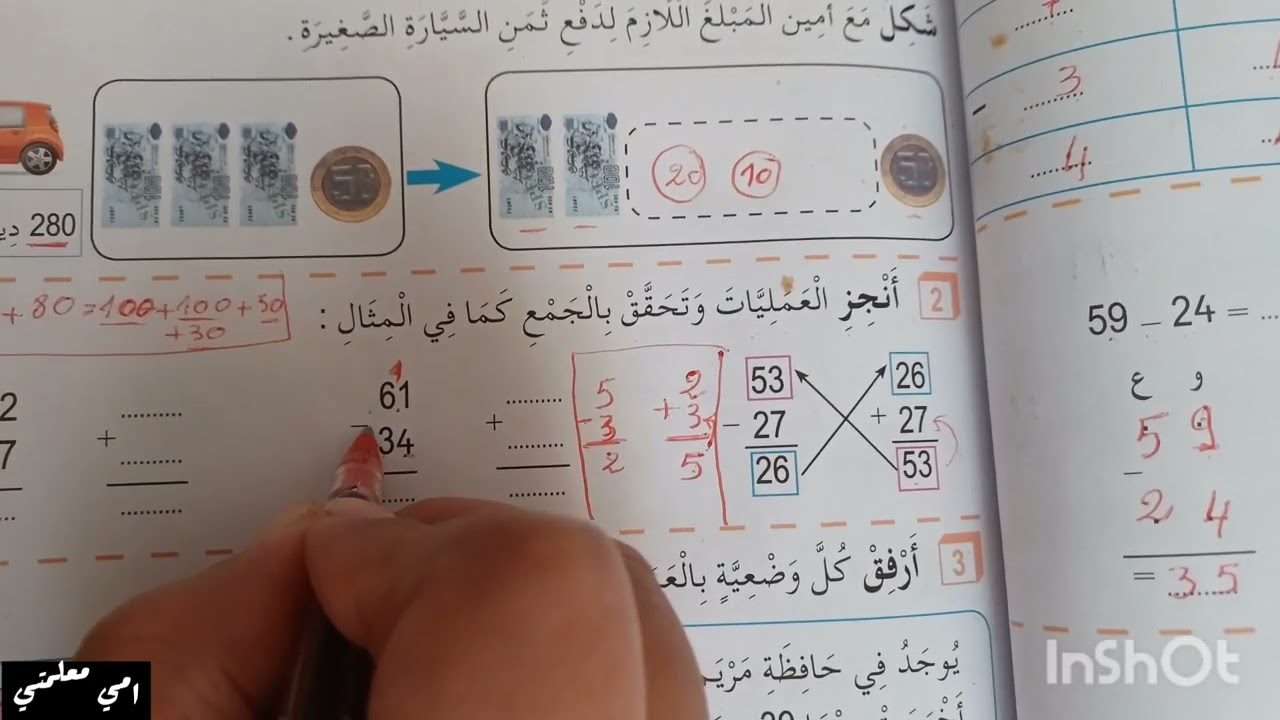 شَكِل مَعَ أمِين الْمَبْلَغَ اللَّازِمَ لِدَفْعِ ثَمَنِ السَّيَّارَةِ الصَّغِيرَةِ .
280
20 10
+ 80 = 100 + 100 + 50
+ 30
2 أَنْجِزِ الْعَمَلِيَّاتَ وَتَحَقَّقْ بِالْجَمْعِ كَمَا فِي الْمِثَالِ :
53
- 27
26
26
+ 27
53
2
+ 3
5
5
- 3
2
..........
+ ..........
..........
1
61
- 34
......
..........
+ ..........
..........
2
7
3 أَرْفِقْ كُلَّ وَضْعِيَّةٍ
يُوجَدُ فِي حَافِظَةِ
3
-
4
59 - 24 = ...
و ع
59
-
24
= 35
InShOt
امي معلمتي